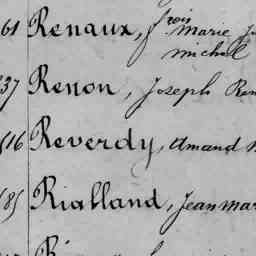 61 Renaux, frois Marie
michel
37 Renon, Joseph
516 Reverdy, Amand
585 Rialland, Jean mar